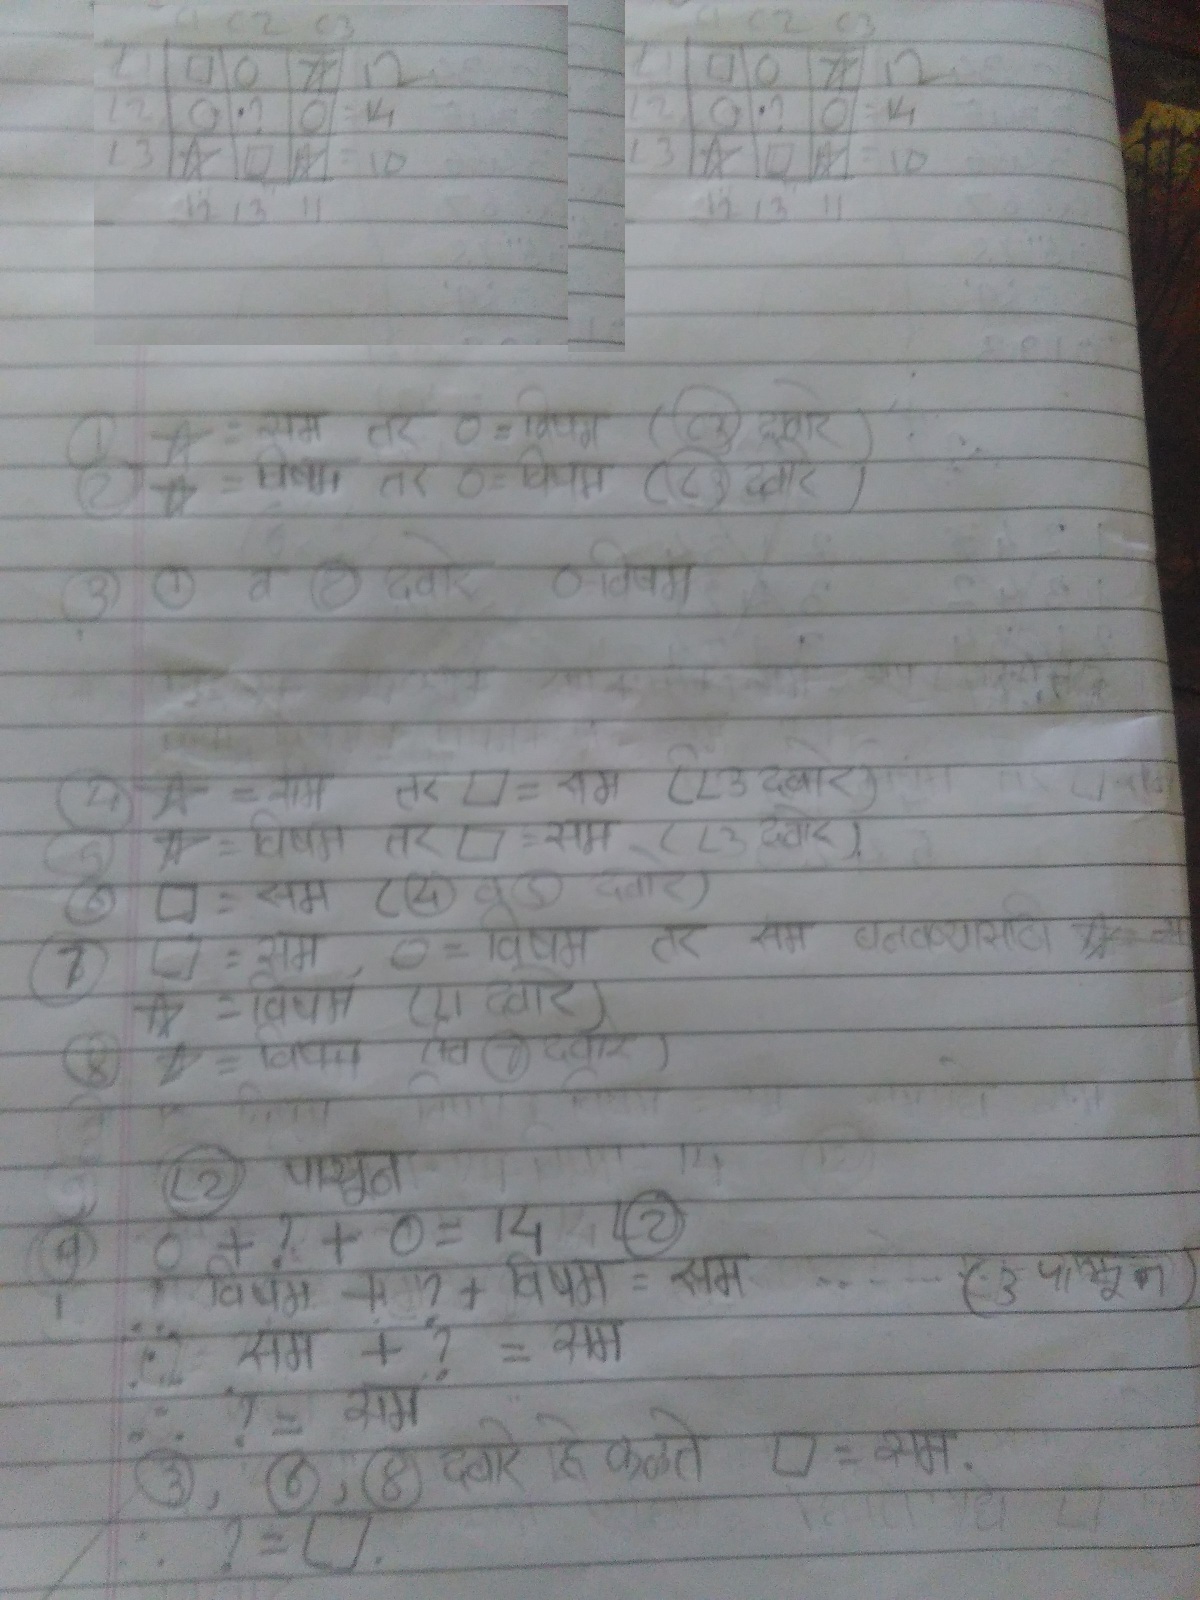 C1 C2 C3
L1 □ 0 ☆ 12
L2 0 ? 0 = 14
L3 ☆ □ ☆ = 10
12 13 11
L1 □ 0 ☆ 12
L2 0 ? 0 = 14
L3 ☆ □ ☆ = 10
12 13 11
① ☆ = सम तर 0 = विषम (C3 दवारे)
② ☆ = विषम तर 0 = विषम (C3 दवारे)
③ ① व ② दवारे 0 विषम
④ ☆ = सम तर □ = सम (L3 दवारे)
⑤ ☆ = विषम तर □ = सम (L3 दवारे)
⑥ □ = सम (④ व ⑤ दवारे)
⑦ □ = सम, 0 = विषम तर सम
☆ = विषम (L1 दवारे)
⑧ ☆ = विषम ( ⑦ दवारे)
L2 पासून
⑨ 0 + ? + 0 = 14 L2
विषम + ? + विषम = सम (3 पासून)
∴ सम + ? = सम
∴ ? = सम
③, ⑥, ⑧ दवारे हे कळते □ = सम.
∴ ? = □.